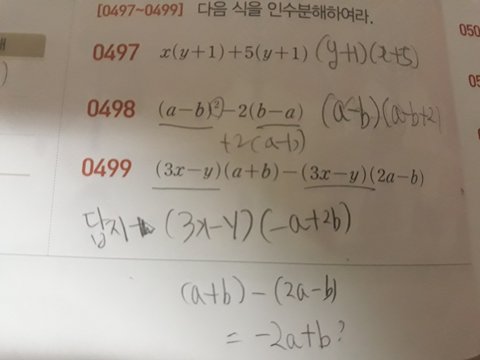 [0497~0499] 다음 식을 인수분해하여라.
0497 x(y+1)+5(y+1) (y+1)(x+5)
0498 (a-b)²-2(b-a) (a-b)(a-b+2)
+2(a-b)
0499 (3x-y)(a+b)-(3x-y)(2a-b)
답지→ (3x-y)(-a+2b)
(a+b)-(2a-b)
= -2a+b?
050
05
0